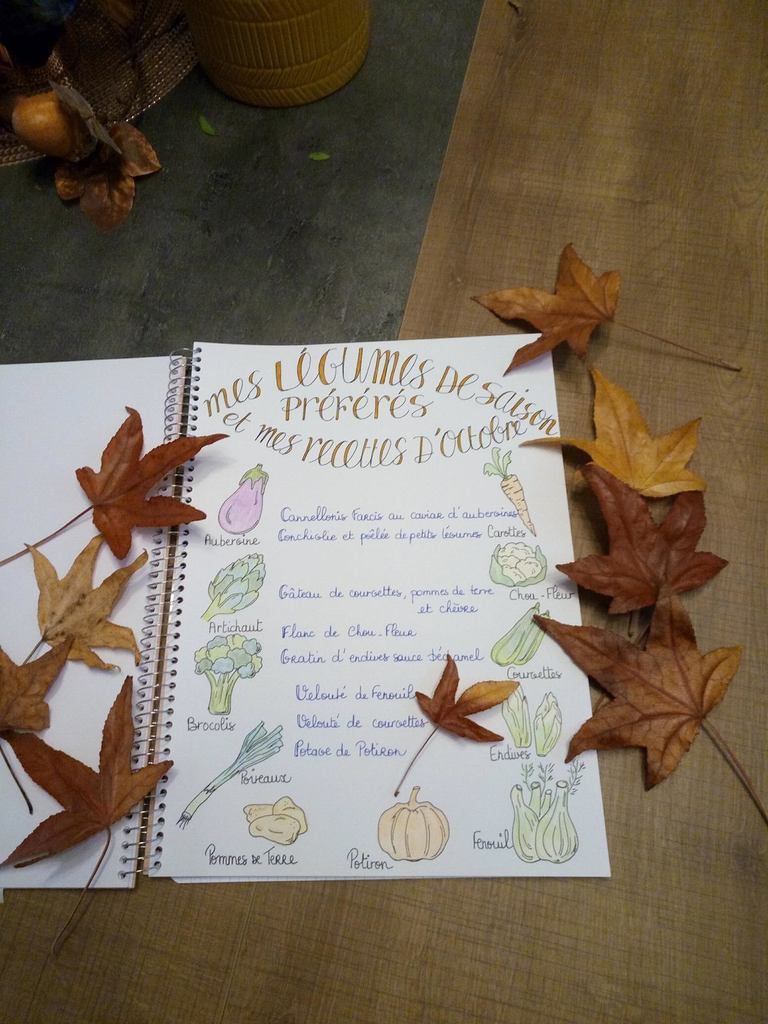 mes LÉGUMES DE SAISON
PRÉFÉRÉS
et mes recettes D'OCTOBRE
Aubergine
Cannellonis Farcis au caviar d'aubergines
Conchiglie et poêlée de petits légumes
Carottes
Chou-Fleur
Gâteau de courgettes, pommes de terre
et chèvre
Artichaut
Flanc de Chou-Fleur
Gratin d'endives sauce Béchamel
Courgettes
Velouté de Fenouil
Brocolis
Velouté de courgettes
Potage de Potiron
Endives
Poireaux
Pommes de Terre
Potiron
Fenouil